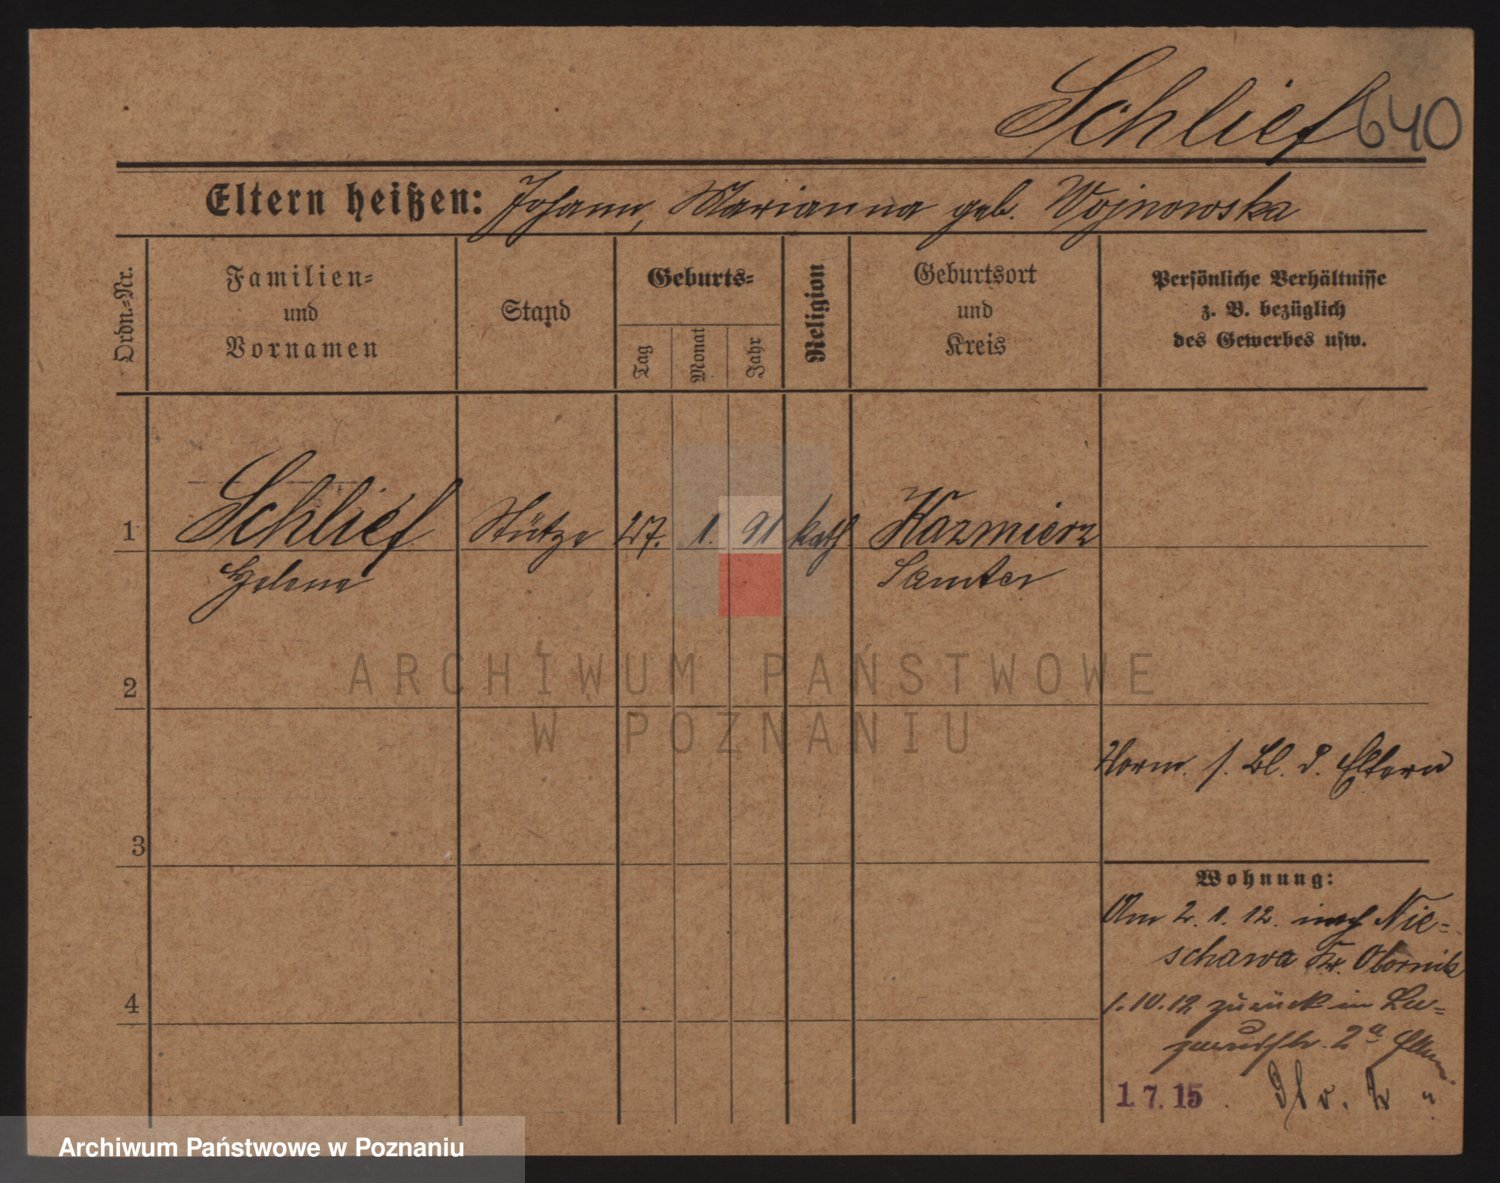 Schlief 640
Eltern heißen: Johann, Marianna geb. Wojnowska
Ordn.-Nr.
Familien-
und
Vornamen
Stand
Geburts-
Tag
Monat
Jahr
Religion
Geburtsort
und
Kreis
Persönliche Verhältnisse
z. B. bezüglich
des Gewerbes usw.
1 Schlief Stütze 27. 1. 91 kath Kazmierz
Helene Samter
2
ARCHIWUM PAŃSTWOWE
W POZNANIU
Vorm. s. Bl. d. Eltern
3
Wohnung:
Am 2. 1. 12. nach Nie-
schawa Kr. Obornik
4
1.10.12 zurück in
2a
1.7.15
Archiwum Państwowe w Poznaniu